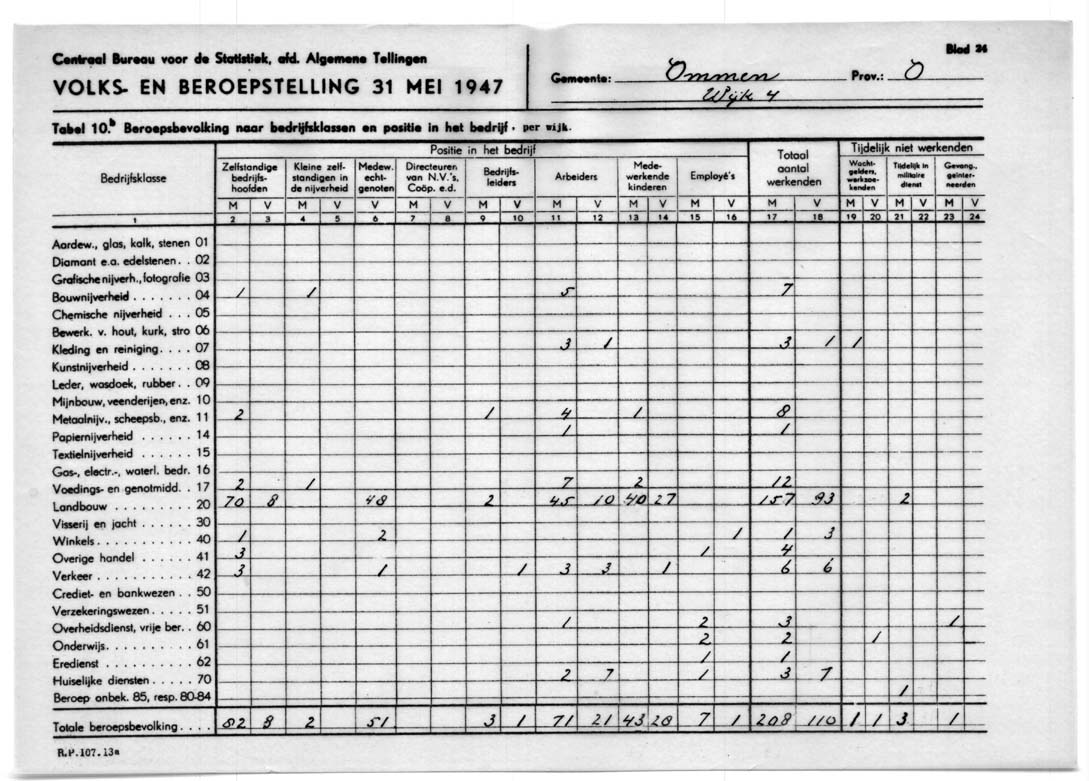 Centraal Bureau voor de Statistiek, afd. Algemene Tellingen
Blad 24
VOLKS- EN BEROEPSTELLING 31 MEI 1947
Gemeente: Ommen Prov.: O
Wijk 4
Tabel 10.b Beroepsbevolking naar bedrijfsklassen en positie in het bedrijf, per wijk.
Bedrijfsklasse
Positie in het bedrijf
Totaal aantal werkenden
Tijdelijk niet werkenden
Zelfstandige bedrijfs-hoofden
Kleine zelf-standigen in de nijverheid
Medew. echt-genoten
Directeuren van N.V.'s, Coöp. e.d.
Bedrijfs-leiders
Arbeiders
Mede-werkende kinderen
Employé's
Wacht-gelders, werkzoe-kenden
Tijdelijk in militaire dienst
Gevang., geïnter-neerden
M V M V V M V M V M V M V M V M V M V M V M V
1 2 3 4 5 6 7 8 9 10 11 12 13 14 15 16 17 18 19 20 21 22 23 24
Aardew., glas, kalk, stenen 01
Diamant e.a. edelstenen. . 02
Grafische nijverh., fotografie 03
Bouwnijverheid . . . . . . . 04 1 1 5 7
Chemische nijverheid . . . 05
Bewerk. v. hout, kurk, stro 06
Kleding en reiniging. . . . 07 3 1 3 1 1
Kunstnijverheid . . . . . . . 08
Leder, wasdoek, rubber. . 09
Mijnbouw, veenderijen, enz. 10
Metaalnijv., scheepsb., enz. 11 2 1 4 1 8
Papiernijverheid . . . . . . 14 1 1
Textielnijverheid . . . . . . 15
Gas-, electr.-, waterl. bedr. 16
Voedings- en genotmidd. . 17 2 1 7 2 12
Landbouw . . . . . . . . . 20 70 8 48 2 45 10 40 27 157 93 2
Visserij en jacht . . . . . . 30
Winkels. . . . . . . . . . . 40 1 2 1 1 3
Overige handel . . . . . . 41 3 1 4
Verkeer . . . . . . . . . . . 42 3 1 1 3 3 1 6 6
Crediet- en bankwezen . . 50
Verzekeringswezen. . . . . 51
Overheidsdienst, vrije ber. . 60 1 2 3 1
Onderwijs. . . . . . . . . . 61 2 2 1
Eredienst . . . . . . . . . . 62 1 1
Huiselijke diensten . . . . . 70 2 7 1 3 7
Beroep onbek. 85, resp. 80-84 1
Totale beroepsbevolking. . . . 82 8 2 51 3 1 71 21 43 28 7 1 208 110 1 1 3 1
R.P.107.13a